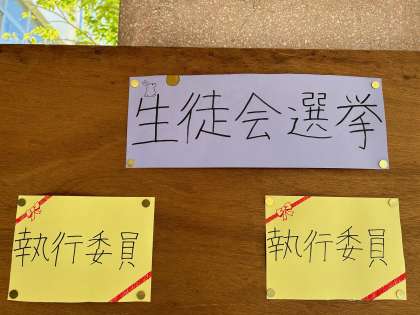 生徒会選挙
執行委員
執行委員